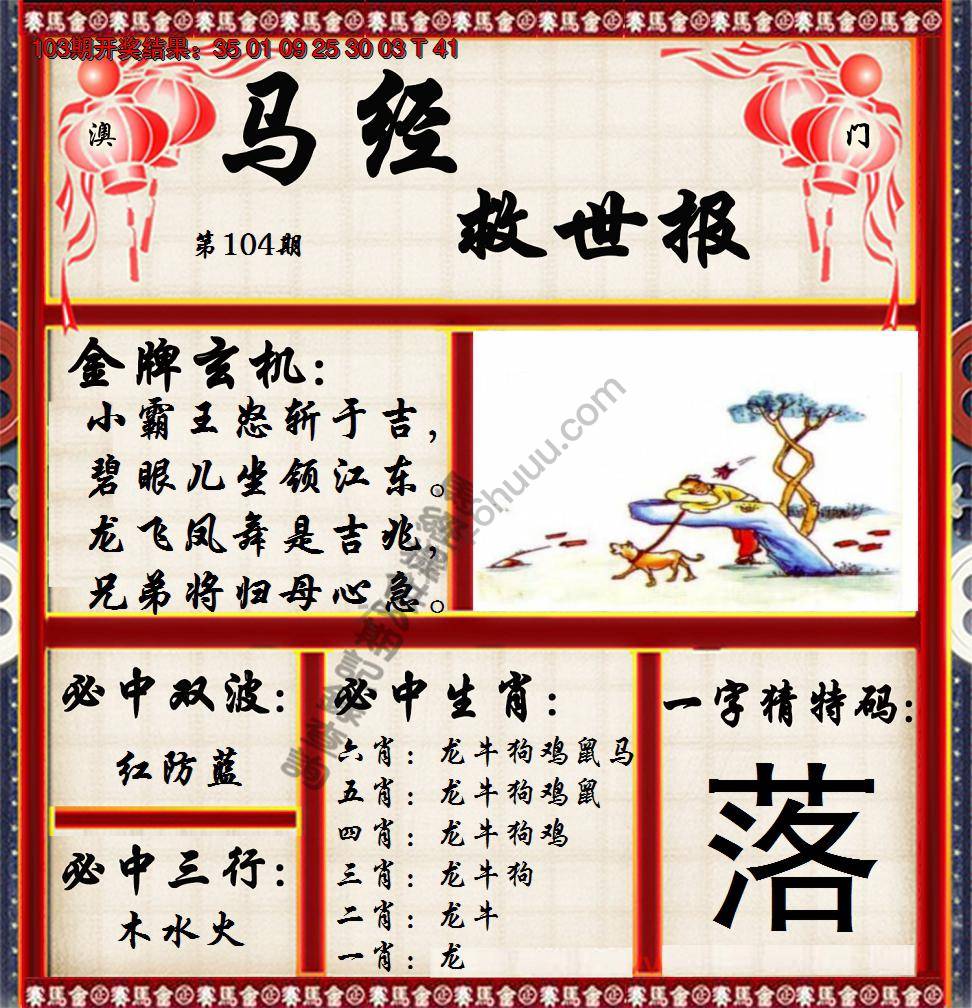 賽馬會 賽馬會 賽馬會 賽馬會 賽馬會 賽馬會 賽馬會 賽馬會
103期开奖结果：35 01 09 25 30 03 T 41
澳
门
马经
救世报
第104期
金牌玄机：
小霸王怒斩于吉，
碧眼儿坐领江东。
龙飞凤舞是吉兆，
兄弟将归母心急。
必中双波：
红防蓝
必中三行：
木水火
必中生肖：
六肖：龙牛狗鸡鼠马
五肖：龙牛狗鸡鼠
四肖：龙牛狗鸡
三肖：龙牛狗
二肖：龙牛
一肖：龙
一字猜特码：
落